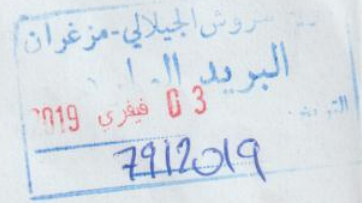 سروش الجيلالي-مزغران
البريد
03 فيفري 2019
7912019